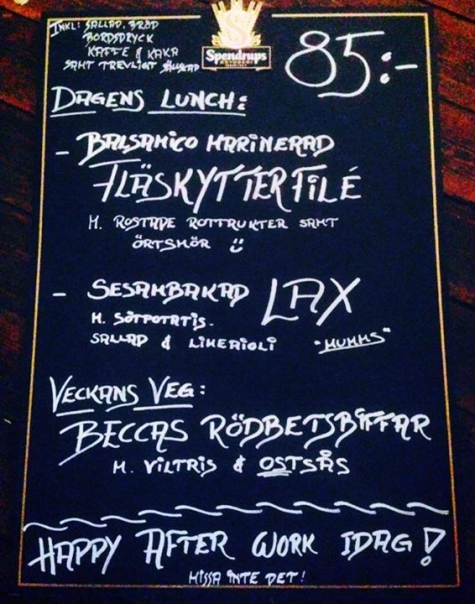 INKL: SALLAD, BRÖD
BORDSDRYCK
KAFFE & KAKA
SAMT TREVLIGT SÄLLSKAP
Spendrups
85:-
DAGENS LUNCH:
- BALSAMICO MARINERAD
FLÄSKYTTERFILÉ
M. ROSTADE ROTFRUKTER SAMT
ÖRTSMÖR
- SESAMBAKAD LAX
M. SÖTPOTATIS.
SALLAD & LIMEAIOLI "MUMMS"
VECKANS VEG:
BECCAS RÖDBETSBIFFAR
M. VILTRIS & OSTSÅS
HAPPY AFTER WORK IDAG!
MISSA INTE DET!